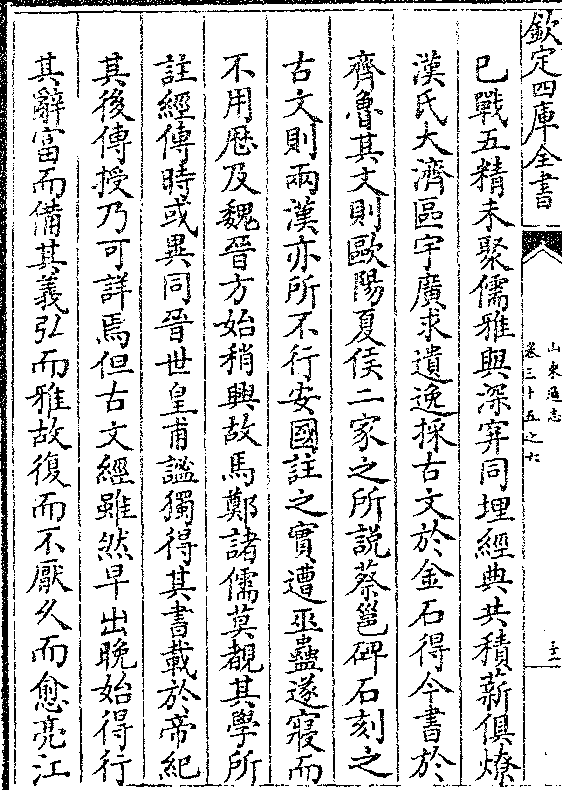 欽定四庫全書
山東通志
卷三十五之十六
已戰五精未聚儒雅與深穽同埋經典共積薪俱燎
漢氏大濟區宇廣求遺逸採古文於金石得今書於
齊魯其文則歐陽夏侯二家之所說蔡邕碑石刻之
古文則兩漢亦所不行安國註之實遭巫蠱遂寢而
不用厯及魏晉方始稍興故馬鄭諸儒莫覩其學所
註經傳時或異同晉世皇甫謐獨得其書載於帝紀
其後傳授乃可詳焉但古文經雖然早出晚始得行
其辭富而備其義弘而雅故復而不厭久而愈亮江